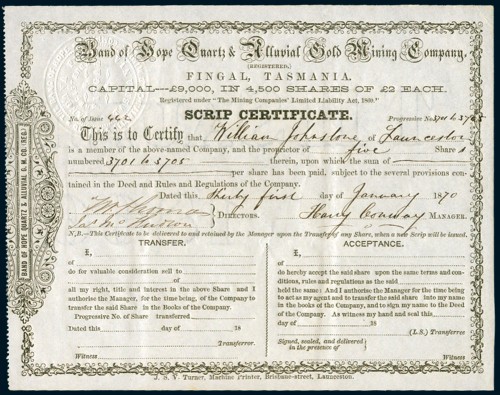 Band of Hope Quartz & Alluvial Gold Mining Company.
(REGISTERED,)
FINGAL, TASMANIA.
CAPITAL—£9,000, IN 4,500 SHARES OF £2 EACH.
Registered under "The Mining Companies' Limited Liability Act, 1869."
SCRIP CERTIFICATE.
No. of Issue 442 Progressive No. 3701 to 3705
This is to Certify that William Johnstone of Launceston
is a member of the above-named Company, and the proprietor of five Share s
numbered 3701 to 3705 therein, upon which the sum of
per share has been paid, subject to the several provisions contained
in the Deed and Rules and Regulations of the Company.
Dated this thirty first day of January 1870
DIRECTORS. Harry Conway MANAGER.
N.B.—This Certificate to be delivered to and retained by the Manager upon the Transfer of any Share, when a new Scrip will be issued.
TRANSFER.
I,
of
do for valuable consideration sell to
of
all my right, title and interest in the above Share and I
authorise the Manager, for the time being, of the Company to
transfer the said Share in the Books of the Company.
Progressive No. of Share transferred
Dated this day of 18
Transferror.
Witness
ACCEPTANCE.
I,
of
do hereby accept the said share upon the same terms and conditions,
rules and regulations as the said
held same: And I authorise the Manager for the time being
to act as my agent and to transfer the said share into my name
in the books of the Company, and to sign my name to the Deed
of the Company. As witness my hand and seal this
day of 18
(L.S.) Transferree.
Signed, sealed, and delivered
in the presence of
Witness
BAND OF HOPE QUARTZ & ALLUVIAL G. M. CO. (REG.)
J. S. V. Turner, Machine Printer, Brisbane-street, Launceston.